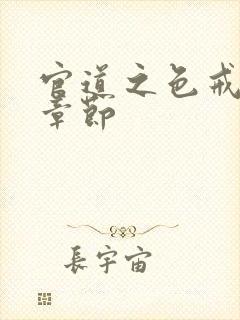 官道之色戒
章節
長宇宙